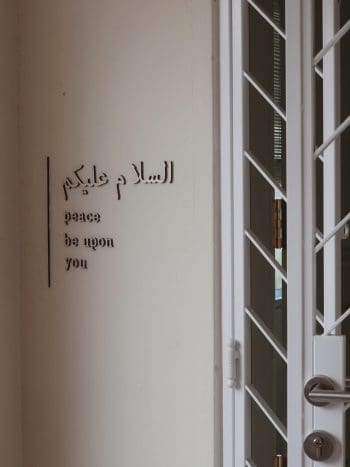 السلام عليكم
peace
be upon
you